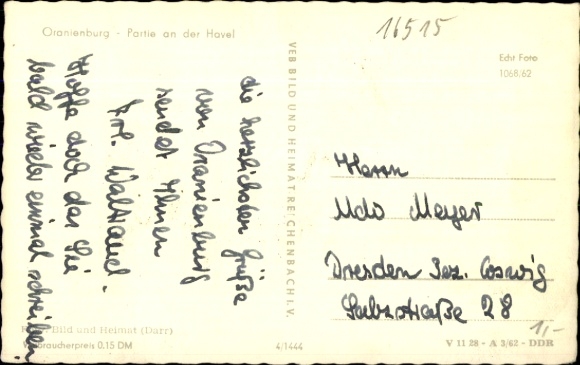 Oranienburg - Partie an der Havel
16515
Echt Foto
1068/62
VEB BILD UND HEIMAT REICHENBACH I. V.
die herzlichsten Grüße
von Oranienburg
sendet Ihnen
Frl. Waltraud.
Hoffe doch das Sie
bald wieder einmal schreiben.
Herrn
Udo Meyer
Dresden Bez. Coswig
28
1,-
Bild und Heimat (Darr)
Verbraucherpreis 0.15 DM
4/1444
V 11 28 - A 3/62 - DDR